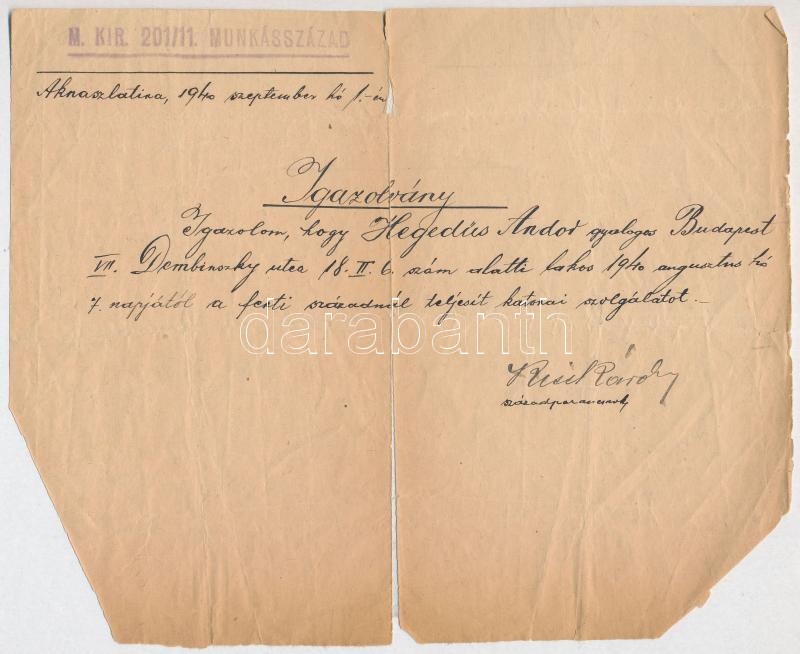 M. KIR. 201/11. MUNKÁSSZÁZAD
Aknaszlatina, 1940 szeptember hó 1.-én
Igazolvány
Igazolom, hogy Hegedüs Andor gyalogos Budapest
VII. Dembinszky utca 18. II. 6. szám alatti lakos 1940 augusztus hó
7. napjától a fenti századnál teljesit katonai szolgálatot.-
darabanth
Károly
századparancsnok